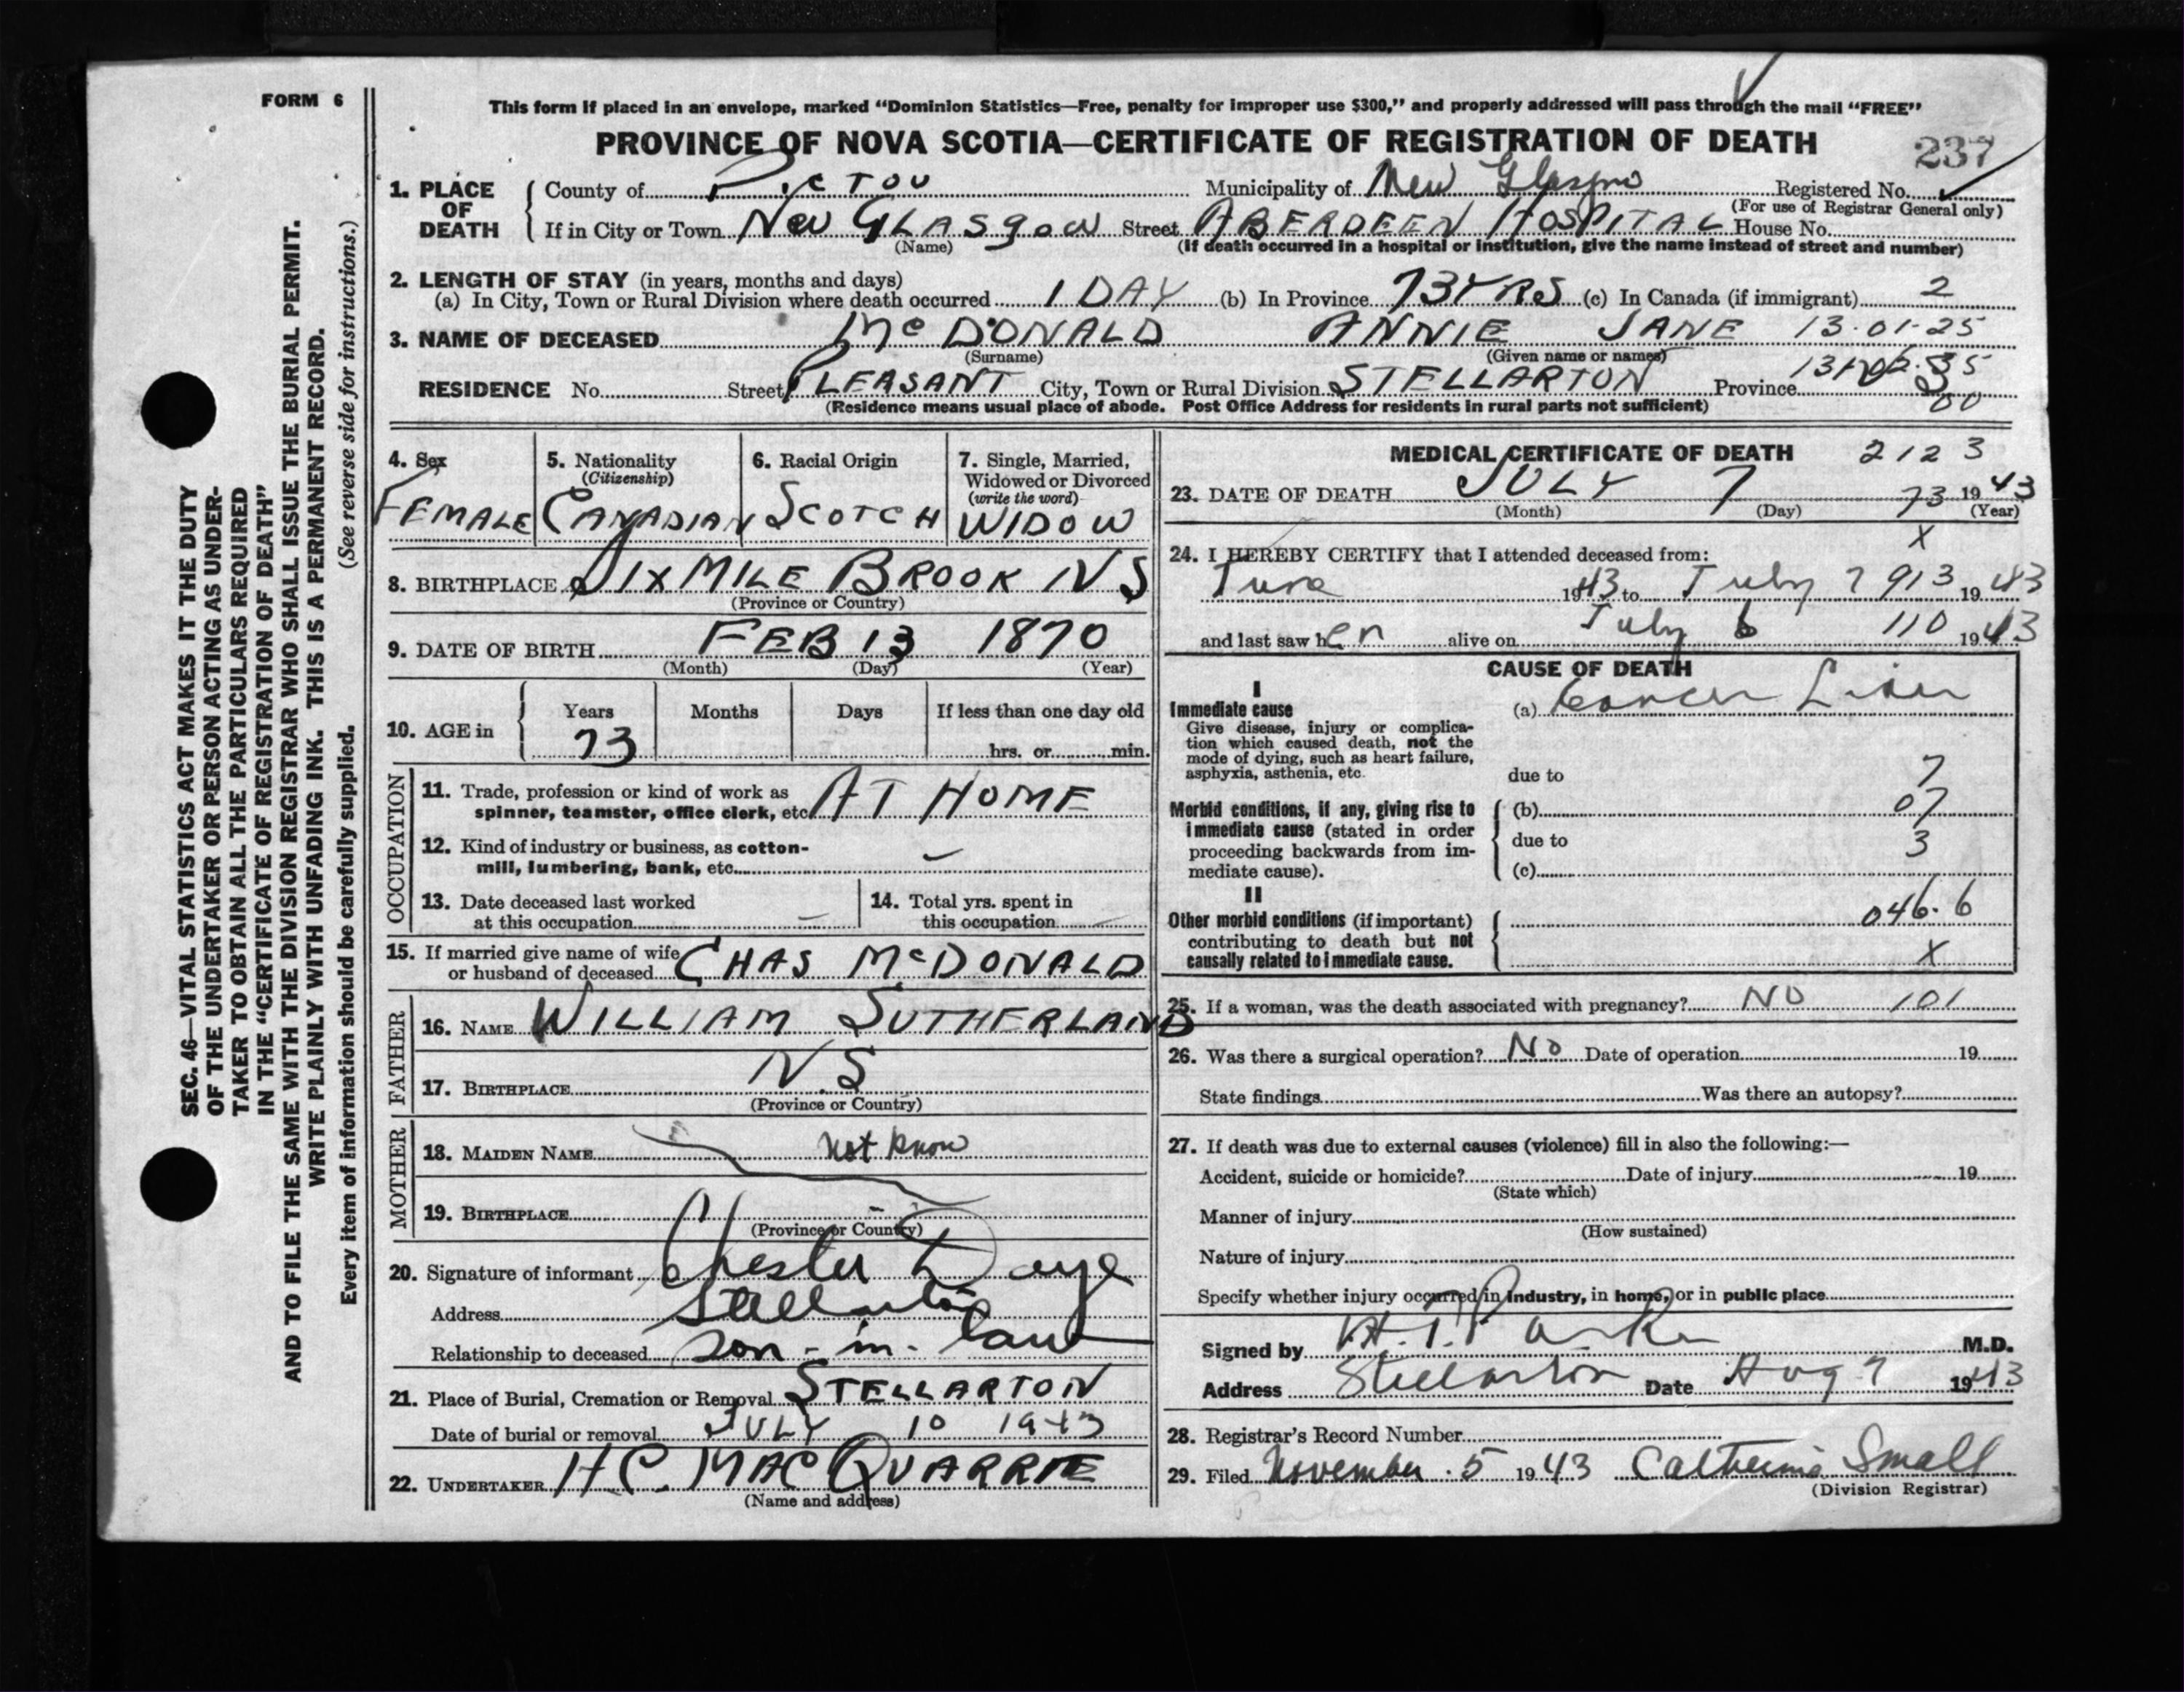 FORM 6
This form if placed in an envelope, marked “Dominion Statistics—Free, penalty for improper use $300,” and properly addressed will pass through the mail “FREE”
PROVINCE OF NOVA SCOTIA—CERTIFICATE OF REGISTRATION OF DEATH
237
1. PLACE OF DEATH
County of Pictou Municipality of New Glasgow Registered No.
(For use of Registrar General only)
If in City or Town New Glasgow Street ABERDEEN HOSPITAL House No.
(Name) (If death occurred in a hospital or institution, give the name instead of street and number)
2. LENGTH OF STAY (in years, months and days)
(a) In City, Town or Rural Division where death occurred 1 DAY (b) In Province 73 YRS (c) In Canada (if immigrant) 2
3. NAME OF DECEASED McDONALD ANNIE JANE 13-01-25
(Surname) (Given name or names)
RESIDENCE No. Street PLEASANT City, Town or Rural Division STELLARTON Province
(Residence means usual place of abode. Post Office Address for residents in rural parts not sufficient) 00
4. Sex
FEMALE
5. Nationality
(Citizenship)
CANADIAN
6. Racial Origin
SCOTCH
7. Single, Married, Widowed or Divorced
(write the word)
WIDOW
8. BIRTHPLACE SIX MILE BROOK NS
(Province or Country)
9. DATE OF BIRTH FEB 13 1870
(Month) (Day) (Year)
10. AGE in Years Months Days If less than one day old
73 hrs. or min.
OCCUPATION
11. Trade, profession or kind of work as
spinner, teamster, office clerk, etc. AT HOME
12. Kind of industry or business, as cotton-
mill, lumbering, bank, etc. –
13. Date deceased last worked
at this occupation –
14. Total yrs. spent in
this occupation –
15. If married give name of wife
or husband of deceased CHAS McDONALD
FATHER
16. NAME WILLIAM SUTHERLAND
17. BIRTHPLACE N.S
(Province or Country)
MOTHER
18. MAIDEN NAME not know
19. BIRTHPLACE
(Province or Country)
20. Signature of informant Chester Daye
Address Stellarton
Relationship to deceased son-in-law
21. Place of Burial, Cremation or Removal STELLARTON
Date of burial or removal JULY 10 1943
22. UNDERTAKER H.C. MACQUARRIE
(Name and address)
MEDICAL CERTIFICATE OF DEATH 2123
23. DATE OF DEATH JULY 7 73 1943
(Month) (Day) (Year)
X
24. I HEREBY CERTIFY that I attended deceased from:
June 1943 to July 7 913 1943
and last saw her alive on July 6 110 1943
CAUSE OF DEATH
I
Immediate cause (a) Cancer Liver
Give disease, injury or complica-
tion which caused death, not the
mode of dying, such as heart failure,
asphyxia, asthenia, etc. due to 7
Morbid conditions, if any, giving rise to (b) 07
immediate cause (stated in order due to 3
proceeding backwards from im-
mediate cause). (c)
II
Other morbid conditions (if important) 046.6
contributing to death but not
causally related to immediate cause. X
25. If a woman, was the death associated with pregnancy? NO 101
26. Was there a surgical operation? NO Date of operation 19
State findings Was there an autopsy?
27. If death was due to external causes (violence) fill in also the following:—
Accident, suicide or homicide? Date of injury 19
(State which)
Manner of injury
(How sustained)
Nature of injury
Specify whether injury occurred in Industry, in home, or in public place
Signed by H.T. Parker M.D.
Address Stellarton Date Aug 7 1943
28. Registrar's Record Number
29. Filed November 5 1943 Catherine Small
(Division Registrar)
SEC. 46—VITAL STATISTICS ACT MAKES IT THE DUTY
OF THE UNDERTAKER OR PERSON ACTING AS UNDER-
TAKER TO OBTAIN ALL THE PARTICULARS REQUIRED
IN THE “CERTIFICATE OF REGISTRATION OF DEATH”
AND TO FILE THE SAME WITH THE DIVISION REGISTRAR WHO SHALL ISSUE THE BURIAL PERMIT.
WRITE PLAINLY WITH UNFADING INK. THIS IS A PERMANENT RECORD.
Every item of information should be carefully supplied. (See reverse side for instructions.)